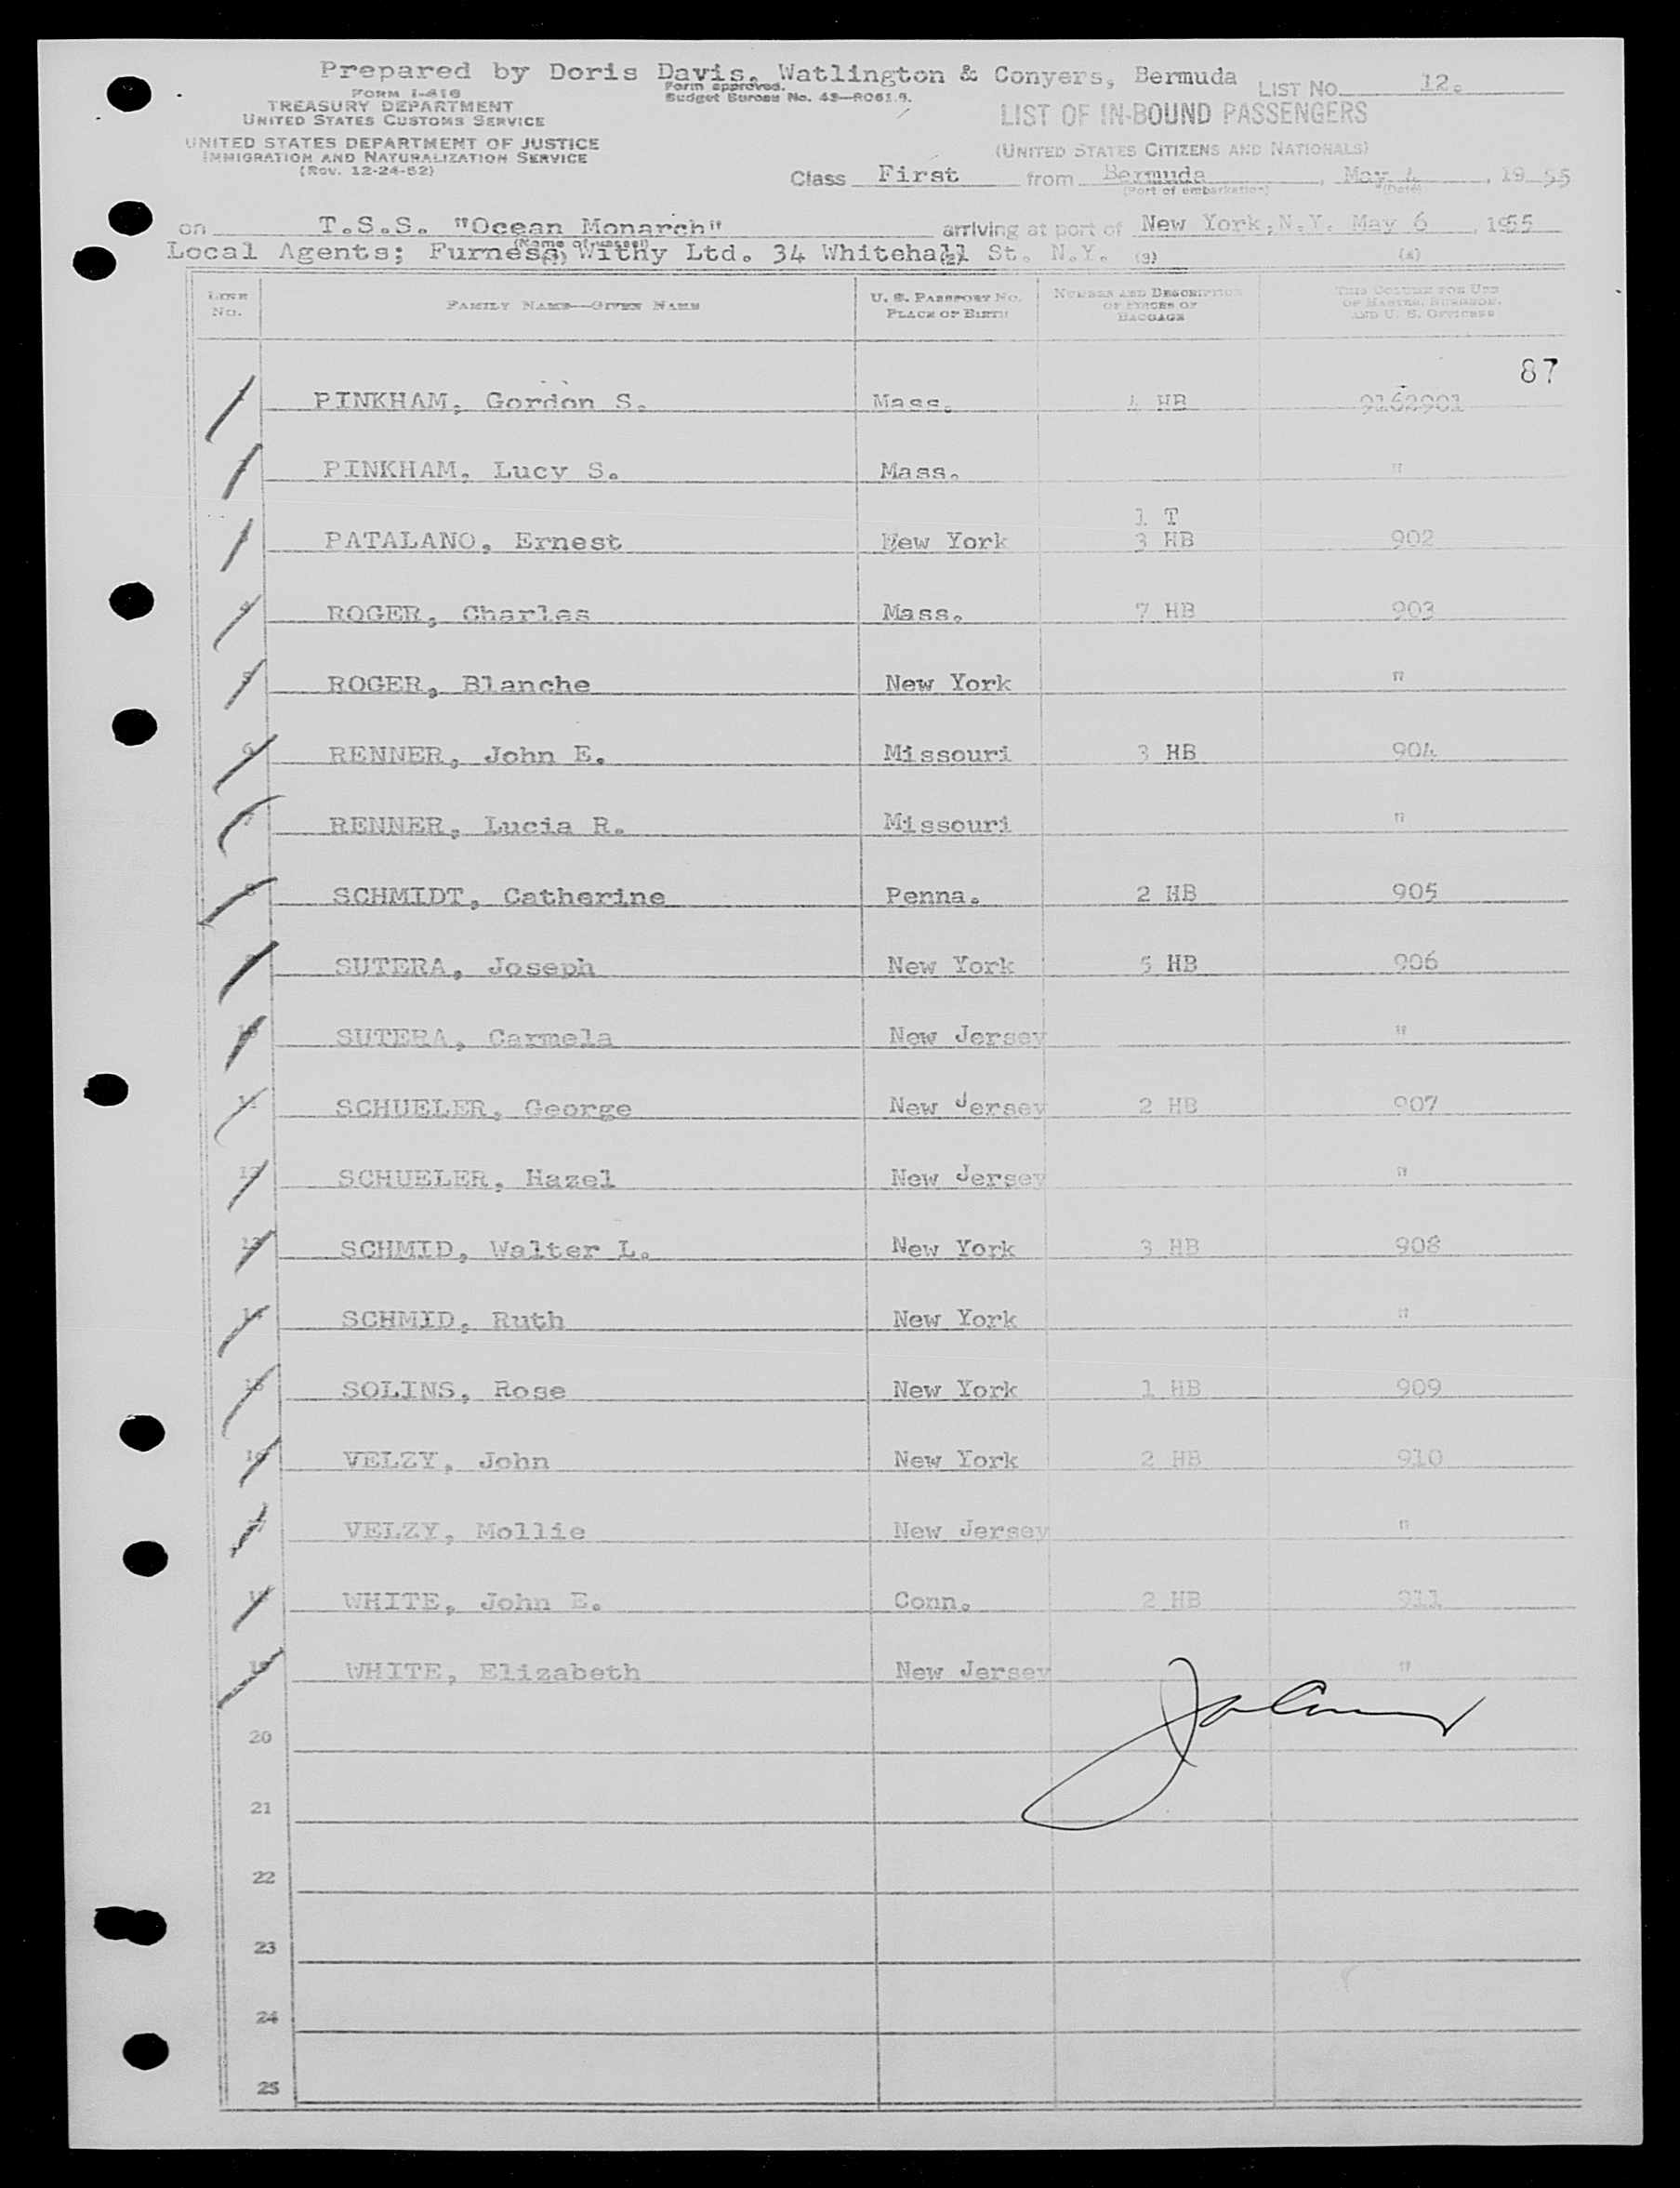 Prepared by Doris Davis, Watlington & Conyers, Bermuda
LIST NO. 12.
FORM I-416
Form approved.
TREASURY DEPARTMENT
Budget Bureau No. 43—R061.9.
UNITED STATES CUSTOMS SERVICE
LIST OF IN-BOUND PASSENGERS
UNITED STATES DEPARTMENT OF JUSTICE
IMMIGRATION AND NATURALIZATION SERVICE
(UNITED STATES CITIZENS AND NATIONALS)
(Rev. 12-24-52)
Class First from Bermuda, May 4, 1955
(Port of embarkation) (Date)
on T.S.S. "Ocean Monarch" arriving at port of New York, N.Y. May 6, 1955
(Name of vessel)
Local Agents; Furness, Withy Ltd. 34 Whitehall St. N.Y.
(1) (2) (3) (4)
LINE NO. FAMILY NAME—GIVEN NAME U. S. PASSPORT NO. PLACE OF BIRTH NUMBER AND DESCRIPTION OF PIECES OF BAGGAGE THIS COLUMN FOR USE OF MASTER, SURGEON, AND U. S. OFFICERS
87
PINKHAM, Gordon S. Mass. 4 HB 9162901
PINKHAM, Lucy S. Mass. "
1 T
PATALANO, Ernest New York 3 HB 902
4 ROGER, Charles Mass. 7 HB 903
5 ROGER, Blanche New York "
6 RENNER, John E. Missouri 3 HB 904
7 RENNER, Lucia R. Missouri "
8 SCHMIDT, Catherine Penna. 2 HB 905
SUTERA, Joseph New York 5 HB 906
10 SUTERA, Carmela New Jersey "
11 SCHUELER, George New Jersey 2 HB 907
12 SCHUELER, Hazel New Jersey "
13 SCHMID, Walter L. New York 3 HB 908
14 SCHMID, Ruth New York "
15 SOLINS, Rose New York 1 HB 909
16 VELZY, John New York 2 HB 910
VELZY, Mollie New Jersey "
WHITE, John E. Conn. 2 HB 911
19 WHITE, Elizabeth New Jersey "
20
21
22
23
24
25